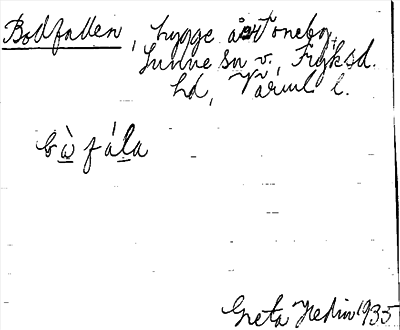 Bodfallen, hygge å Toneby,
Sunne sn v., Fryksd.
hd, Värml l.
bὼfála
Greta Hedin 1935